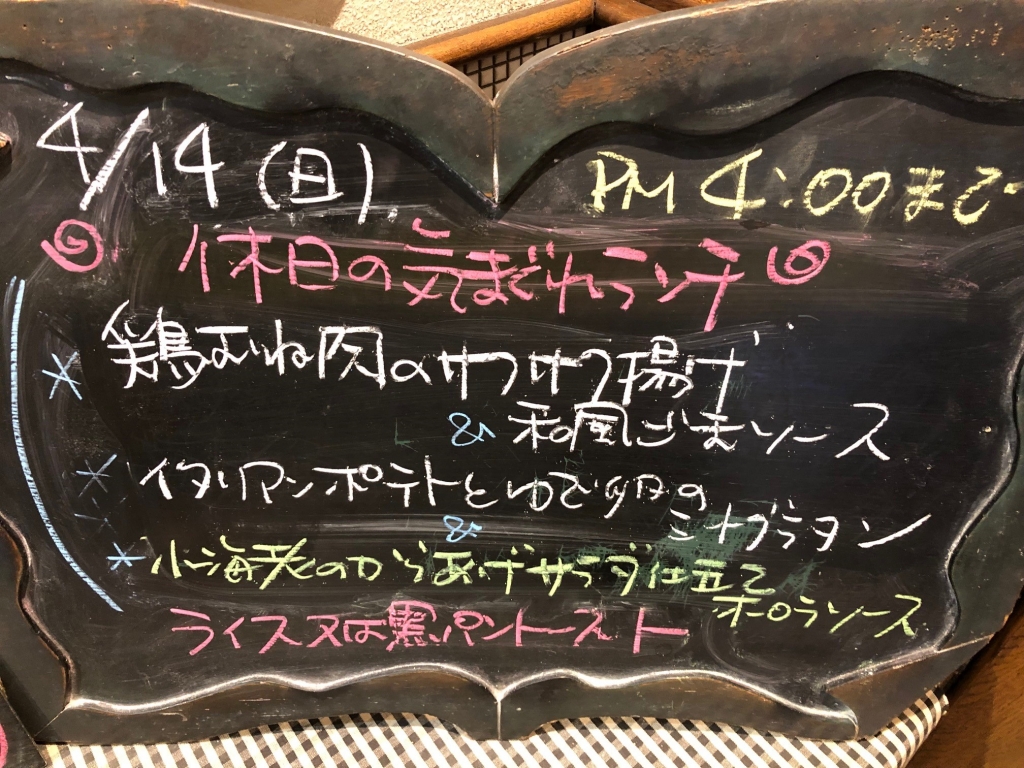 4/14(日).
PM 4:00まで
休日の気まぐれランチ
* 鶏むね肉のサクサク揚げ
& 和風ごまソース
* イタリアンポテトとゆで卵の
ミニグラタン
&
* 小海老のからあげサラダ仕立て
オーロラソース
ライス又は黒パントースト